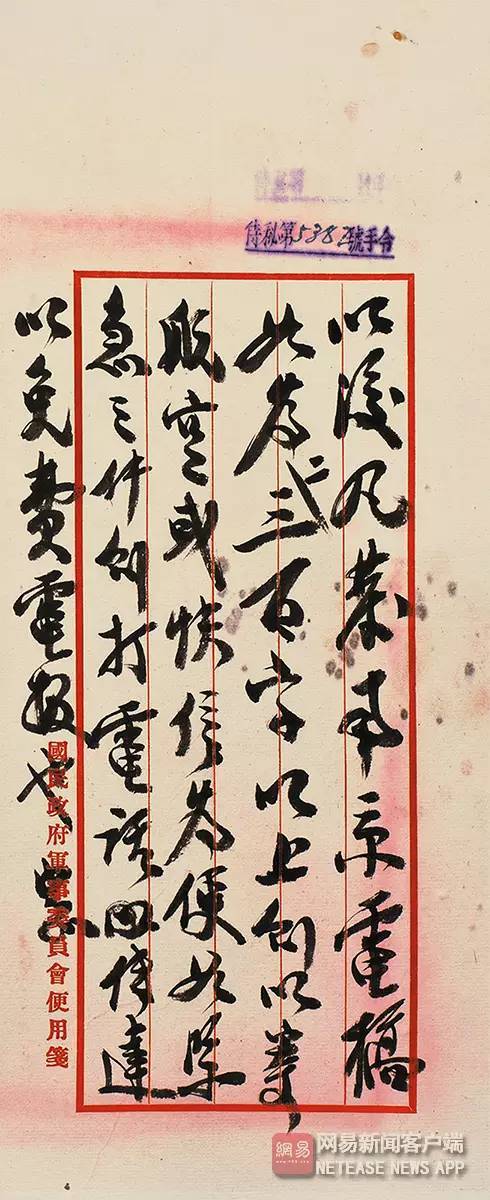 侍秘第538號手令
以後凡京電稿
如為弍三百字以上則以
航空或快信為便如緊
急之件則打電話傳達
以免費電報也
國民政府軍事委員會便用箋
網易
网易新闻客户端
NETEASE NEWS APP